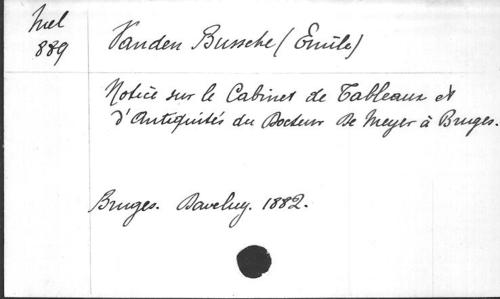 Mel
889
Vanden Bussche (Émile)
Notice sur le Cabinet de Tableaux et
d'Antiquités du Docteur De Meyer à Bruges.
Bruges. Daveluy. 1882.